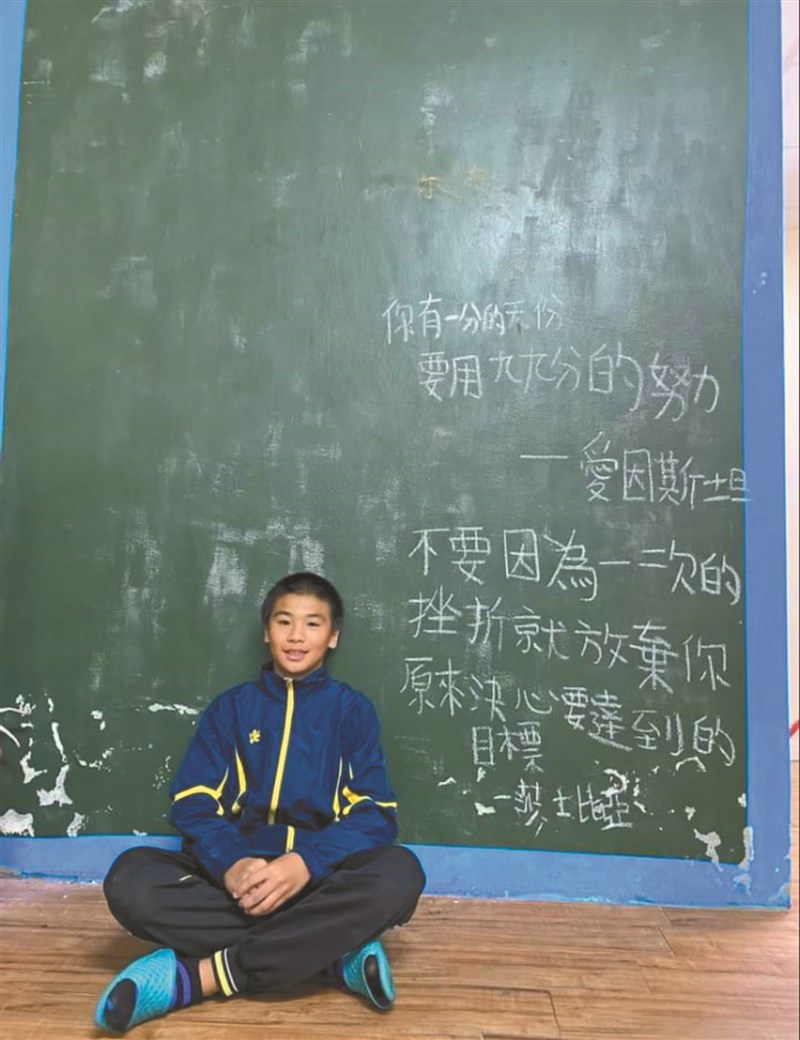 你有一分的天份
要用九九分的努力
—愛因斯坦
不要因為一二次的
挫折就放棄你
原來決心要達到的
目標
—莎士比亞